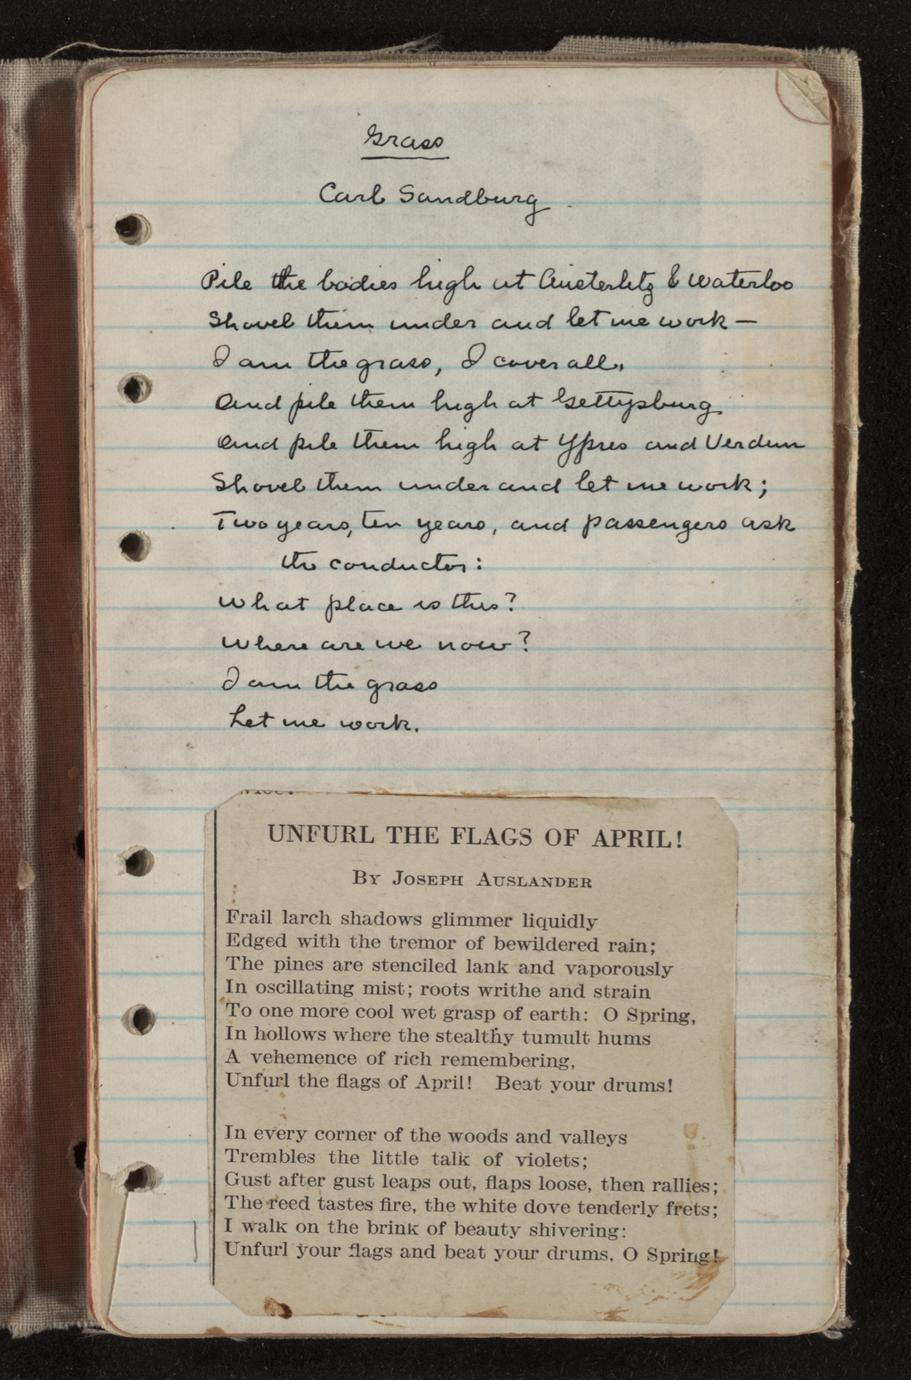 Grass
Carl Sandburg
Pile the bodies high at Austerlitz & Waterloo
Shovel them under and let me work —
I am the grass, I cover all.
And pile them high at Gettysburg
And pile them high at Ypres and Verdun
Shovel them under and let me work;
Two years, ten years, and passengers ask
the conductor:
What place is this?
Where are we now?
I am the grass
Let me work.
UNFURL THE FLAGS OF APRIL!
BY JOSEPH AUSLANDER
Frail larch shadows glimmer liquidly
Edged with the tremor of bewildered rain;
The pines are stenciled lank and vaporously
In oscillating mist; roots writhe and strain
To one more cool wet grasp of earth: O Spring,
In hollows where the stealthy tumult hums
A vehemence of rich remembering,
Unfurl the flags of April! Beat your drums!
In every corner of the woods and valleys
Trembles the little talk of violets;
Gust after gust leaps out, flaps loose, then rallies;
The reed tastes fire, the white dove tenderly frets;
I walk on the brink of beauty shivering:
Unfurl your flags and beat your drums, O Spring!